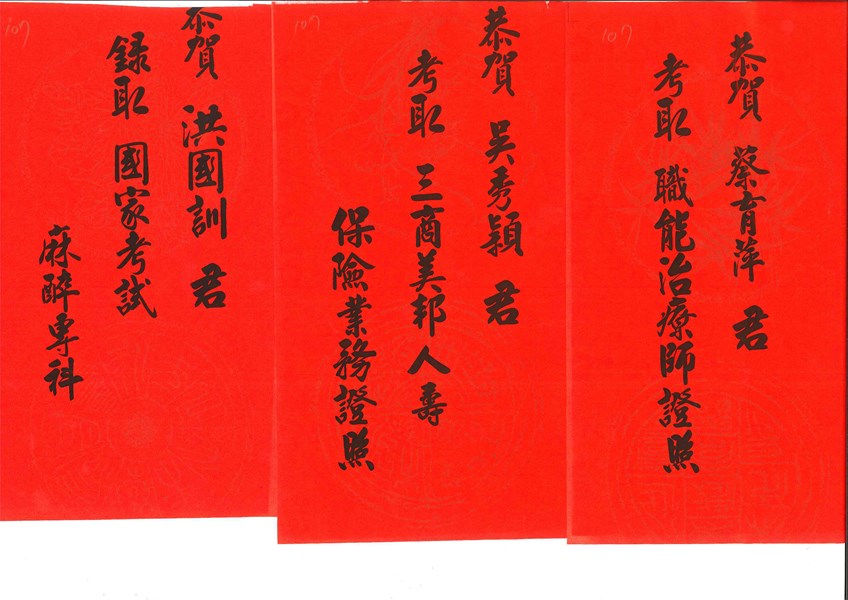 107
恭賀 蔡育萍 君
考取 職能治療師證照
107
恭賀 吳秀穎 君
考取 三商美邦人壽
保險業務證照
107
恭賀 洪國訓 君
錄取 國家考試
麻醉專科